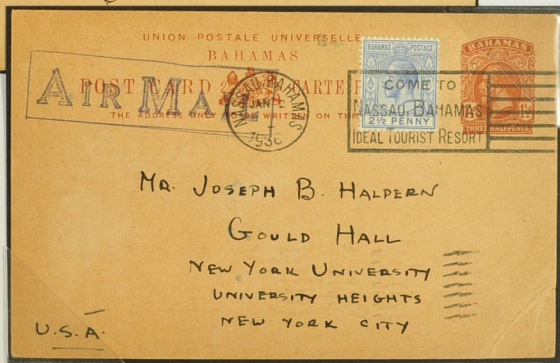 UNION POSTALE UNIVERSELLE
BAHAMAS
POST CARD CARTE
AIR MAIL
THE ADDRESS ONLY WRITTEN ON
NASSAU BAHAMAS
JAN
1936
BAHAMAS POSTAGE
2½ PENNY
COME TO
NASSAU BAHAMAS
IDEAL TOURIST RESORT
BAHAMAS
THREE HALFPENCE
MR. JOSEPH B. HALPERN
GOULD HALL
NEW YORK UNIVERSITY
UNIVERSITY HEIGHTS
NEW YORK CITY
U.S.A.